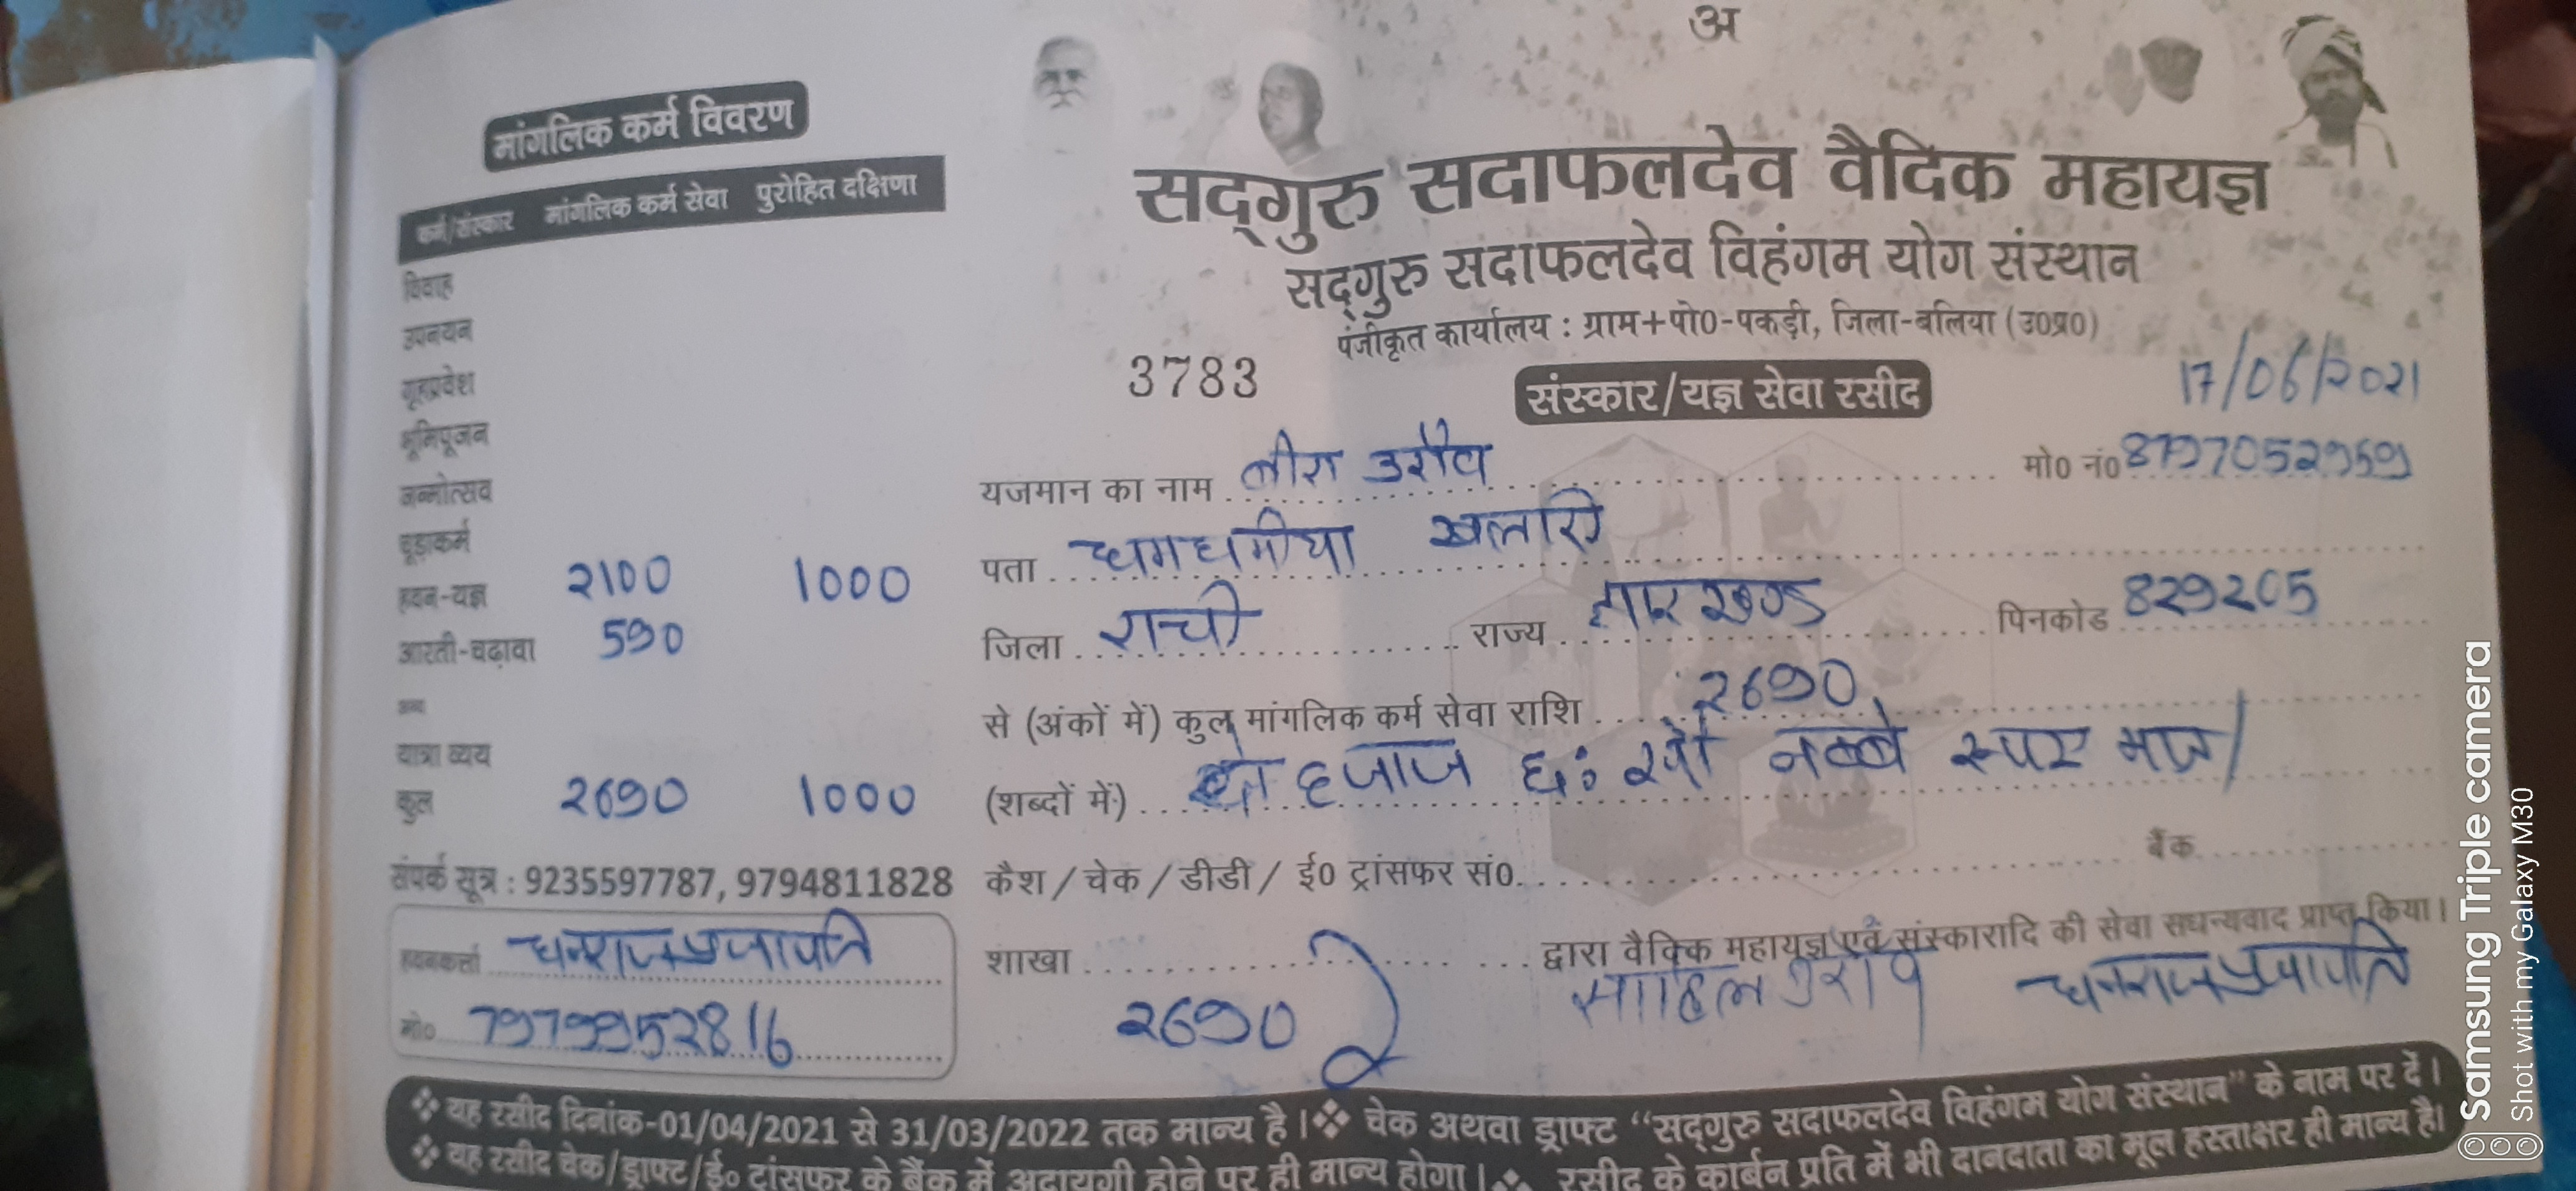 अ
मांगलिक कर्म विवरण
कर्म/संस्कार मांगलिक कर्म सेवा पुरोहित दक्षिणा
विवाह
उपनयन
गृहप्रवेश
भूमिपूजन
जन्मोत्सव
चूड़ाकर्म
हवन-यज्ञ २100 1000
आरती-चढ़ावा 590
यात्रा व्यय
कुल २690 1000
संपर्क सूत्र : 9235597787, 9794811828
हवनकर्त्ता धनराज प्रजापति
मो० 7979952816
सद्गुरु सदाफलदेव वैदिक महायज्ञ
सद्गुरु सदाफलदेव विहंगम योग संस्थान
पंजीकृत कार्यालय : ग्राम+पो0-पकड़ी, जिला-बलिया (उ0प्र0)
3783
संस्कार/यज्ञ सेवा रसीद
17/06/२०२1
यजमान का नाम उराँव मो0 नं0
पता धमधमीया खलारी
जिला राची राज्य झारखण्ड पिनकोड 829205
से (अंकों में) कुल मांगलिक कर्म सेवा राशि २690
(शब्दों में) दो हजाज छः सौ नब्बे रूपए मात्र/
कैश/चेक/डीडी/ ई0 ट्रांसफर सं0 बैंक
शाखा द्वारा वैदिक महायज्ञ एवं संस्कारादि की सेवा सधन्यवाद प्राप्त किया।
२690 धनराज प्रजापति
❖ यह रसीद दिनांक-01/04/2021 से 31/03/2022 तक मान्य है। ❖ चेक अथवा ड्राफ्ट “सद्गुरु सदाफलदेव विहंगम योग संस्थान” के नाम पर दें।
❖ यह रसीद चेक/ड्राफ्ट/ई० ट्रांसफर के बैंक में अदायगी होने पर ही मान्य होगा। ❖ रसीद के कार्बन प्रति में भी दानदाता का मूल हस्ताक्षर ही मान्य है।
Samsung Triple camera
Shot with my Galaxy M30